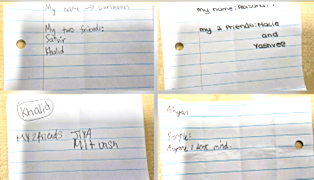 My name →
My two friends:
Satvir
Khalid
my name:
my 2 friends: Macie
and
Yashvee
Khalid
My 2 friends JiYA
Mitvish
Anyone I dont mind.